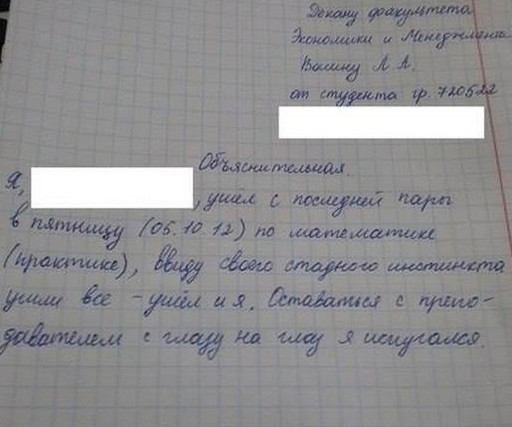 Декану факультета
Экономики и Менеджмента
Вашину Л. А.
от студента гр. 720522
Объяснительная.
Я, , ушёл с последней пары
в пятницу (05.10.12) по математике
(практике), ввиду своего стадного инстинкта
ушли все – ушёл и я. Оставаться с препо-
давателем с глазу на глаз я испугался.